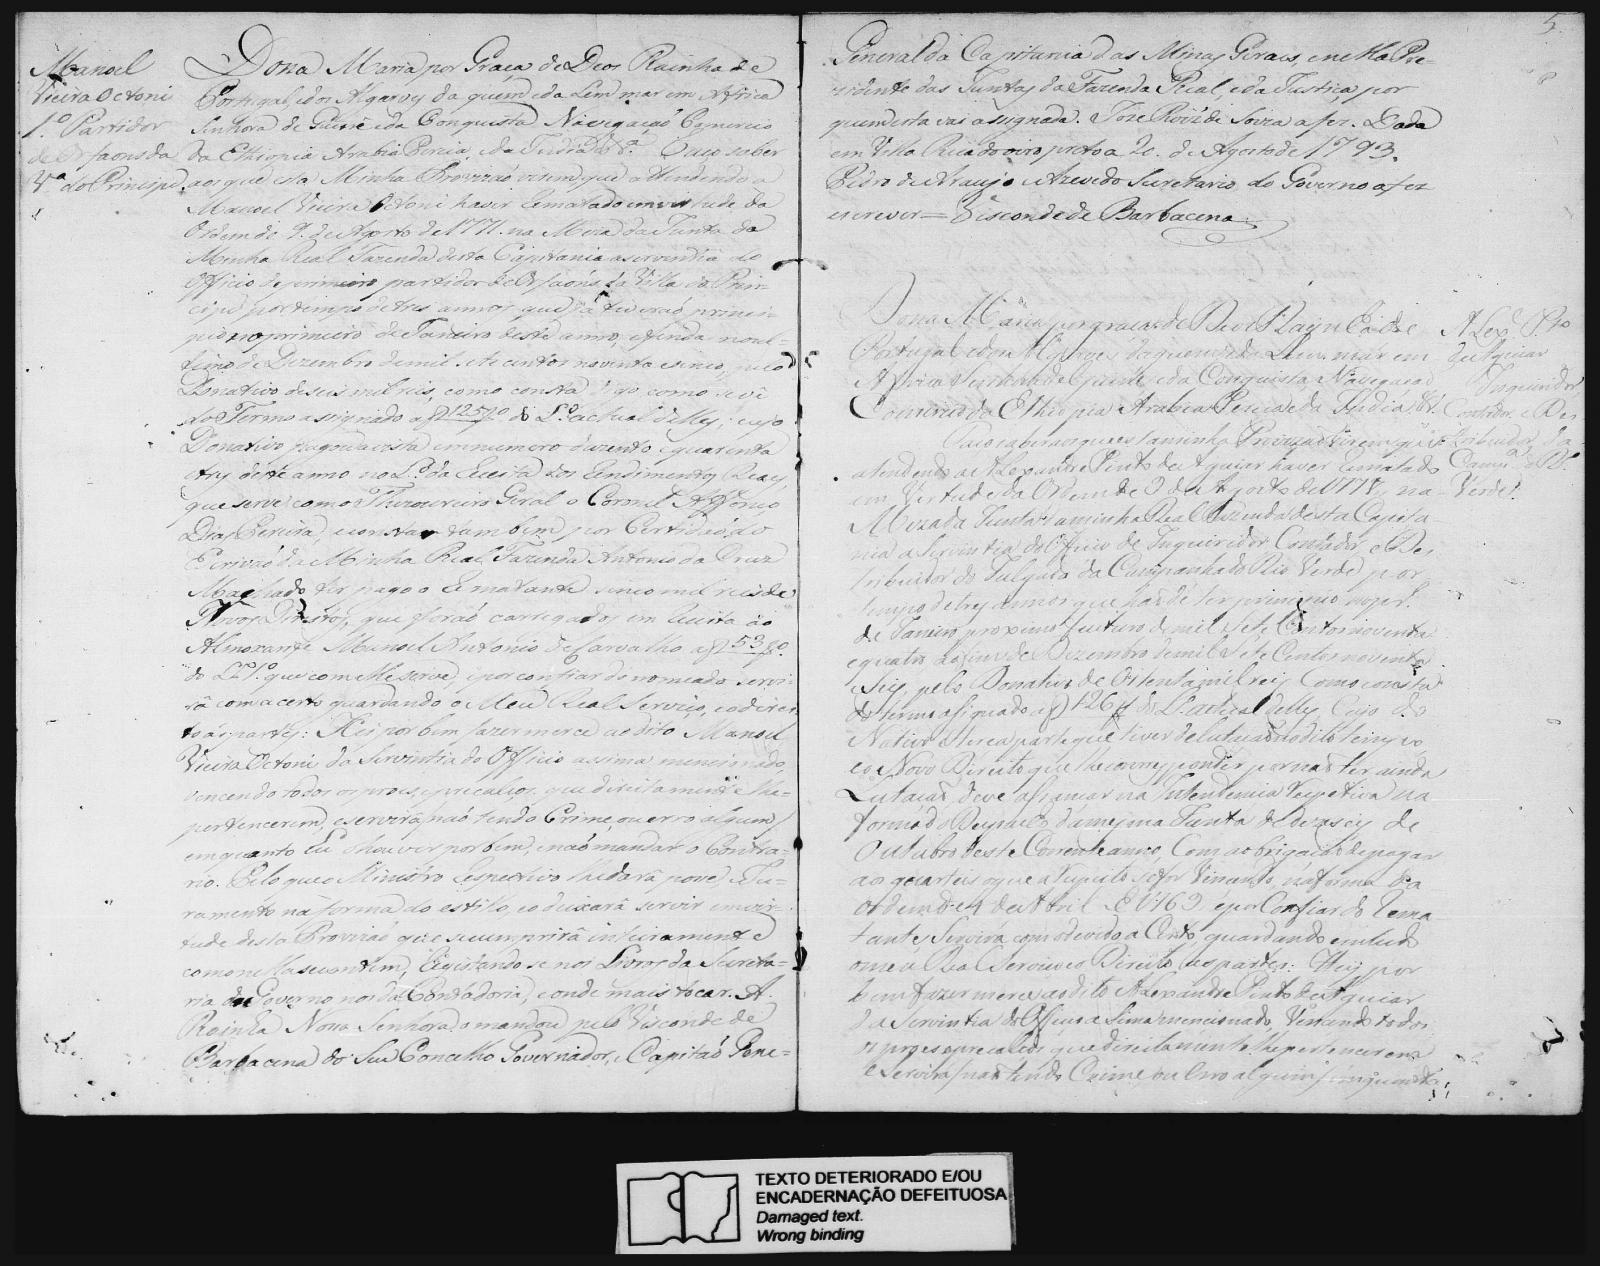 Manoel
Vieira Octoni
1.º Partidor
de Orfaons da
V.ª do Principe
Dona Maria por Graça de Deos Rainha de
Portugal, e dos Algarves da quem e da lem mar em Africa
Senhora de Guiné e da Conquista Navegaçaõ Comercio
da Ethiopia Arabia Percia, e da India &.ª Faço saber
aos que esta Minha Provizaõ virem que attendendo a
Manoel Vieira Octoni haver Rematado em virtude da
Ordem de 9. de Agosto de 1771. na Meza da Junta da
Minha Real Fazenda desta Capitania a serventia do
Officio de primeiro partidor de Orfaons da Villa do Prin-
cipe por tempo de tres annos que já tiveraõ princi-
pio no primeiro de Janeiro deste anno, e finda no ul-
timo de Dezembro de mil sete centos noventa e sinco, pelo
Donativo de seis mil reis, como consta digo como se vê
do Termo assignado a f 125 do L.º actual dellas, cujo
Donativo pagou a vista em numero duzento e quarenta
e tres deste anno no L.º da Receita dos Rendimentos Reaes,
que serve como Thezoureiro Geral o Coronel Affonço
Dias Pereira, e constar tambem por Certidaõ do
Escrivaõ da Minha Real Fazenda Antonio da Cruz
Machado ter pago o Rematante sinco mil reis de
Novos Direitos, que foraõ carregados em Receita ao
Almoxarife Manoel Antonio de Carvalho a f 53
do L.º 1.º que com elle serve, e por confiar do nomeado servi-
rá com acerto guardando o Meu Real Serviço, e o direi-
to ás partes: Hei por bem fazer merce ao dito Manoel
Vieira Octoni da Serventia do Officio assima mencionado
vencendo todos os proes, e precalços, que direitamente lhe
pertencerem, e servirá naõ tendo Crime, ou erro algum
emquanto Eu o houver por bem, e naõ mandar o Contra-
rio. Pelo que o Ministro Respectivo lhe dará posse, e Ju-
ramento na forma do estilo, e o deixará servir em vir-
tude desta Provizaõ que se cumprirá inteiramente
como nella se contem, Registando-se nos Livros da Secreta-
ria do Governo nos da Contadoria, e onde mais tocar. A
Rainha Nossa Senhora o mandou pelo Visconde de
Barbacena do Seu Concelho Governador, e Capitaõ Gene-
5
General da Capitania das Minas Geraes, e nella Pre-
zidente das Juntas da Fazenda Real e da Justiça, por
quem esta vai assignada. Joze Roiz de Souza a fez. Dada
em Villa Rica do ouro preto a 20. de Agosto de 1793.
Pedro de Araujo e Azevedo Secretario do Governo a fez
escrever = Visconde de Barbacena.
Alex.e P.to
de Aguiar
Inqueridor
Contador, e Des-
tribuidor da
Camp.ª do R.º
Verde.
Dona Maria por graça de Deos Raynha de
Portugal e dos Algarves daquem e da Lem mar em
Affrica Senhora de Guiné e da Conquista Navegaçaõ
Comercio da Ethiopia Arabia Percia e da India &.
Faço saber aos que esta minha Provizaõ virem que
atendendo a Alexandre Pinto de Aguiar haver Rematado
em Vertude da Ordem de 9 de Agosto de 1771, na
Meza da Junta da minha Real Fazenda desta Capita-
nia a Serventia do Officio de Inquiridor Contador, e Des-
tribuidor do Julgado da Campanha do Rio Verde por
tempo de tres annos que haõ de ter principio no pr.º
de Janeiro proximo futuro de mil Sete Centos noventa
e quatro ao fim de Dezembro de mil Sete Centos noventa
e Seis, pelo Donativo de Oitenta mil reis Como consta
do termo asignado a f 126 do L.º actual dellas, Cujo do-
Nativo e terça parte que tiver de lutuaçaõ no dito tempo
e o Novo Direito que lhe corresponder por naõ ter ainda
Lutaçaõ, deve afiançar na Intendencia respectiva na
forma do Despacho da mesma Junta de dezaseis de
Outubro deste Corrente anno, Com ao brigaçaõ de pagar
aos quarteis o que a respeito se for Vencendo, na forma da
Ordem de 4 de Abril de 1769, e por Confiar do Rema-
tante, Servirá com o devido a Certo, guardando em tudo
o meu Real Serviço e o Direito as partes: Hey por
bem fazer merce ao dito Alexandre Pinto de Aguiar
da Serventia do Officio a Sima mencionado, Vencendo todos
os proes e precalços que direitamente lhe pertencerem
e Servirá, naõ tendo Crime, ou erro algum, emquanto
TEXTO DETERIORADO E/OU
ENCADERNAÇÃO DEFEITUOSA
Damaged text.
Wrong binding